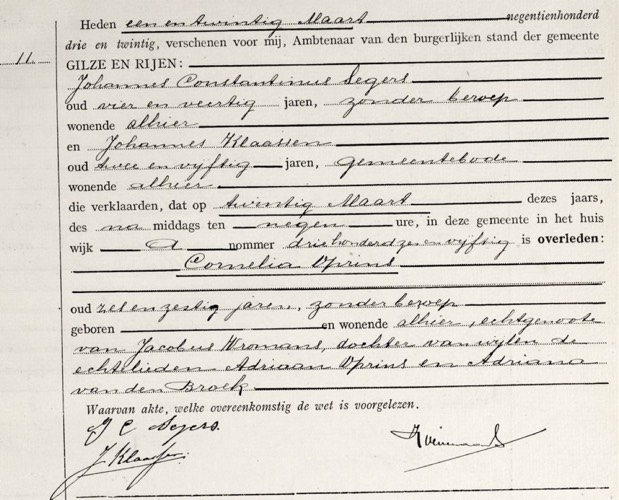 Heden een en twintig Maart negentienhonderd
drie en twintig, verschenen voor mij, Ambtenaar van den burgerlijken stand der gemeente
11.
GILZE EN RIJEN:
Johannes Constantinus Segers
oud vier en veertig jaren, zonder beroep
wonende alhier
en Johannes Klaassen
oud twee en vyftig jaren, gemeentebode
wonende alhier
die verklaarden, dat op twintig Maart dezes jaars,
des na middags ten negen ure, in deze gemeente in het huis
wijk A nommer driehonderdzesenvyftig is overleden:
Cornelia Oprins
oud zes en zestig jaren, zonder beroep
geboren en wonende alhier, echtgenoote
van Jacobus Vromans, dochter van wylen de
echtelieden Adriaan Oprins en Adriana
van den Broek
Waarvan akte, welke overeenkomstig de wet is voorgelezen.
J C Segers.
J. Klaassen